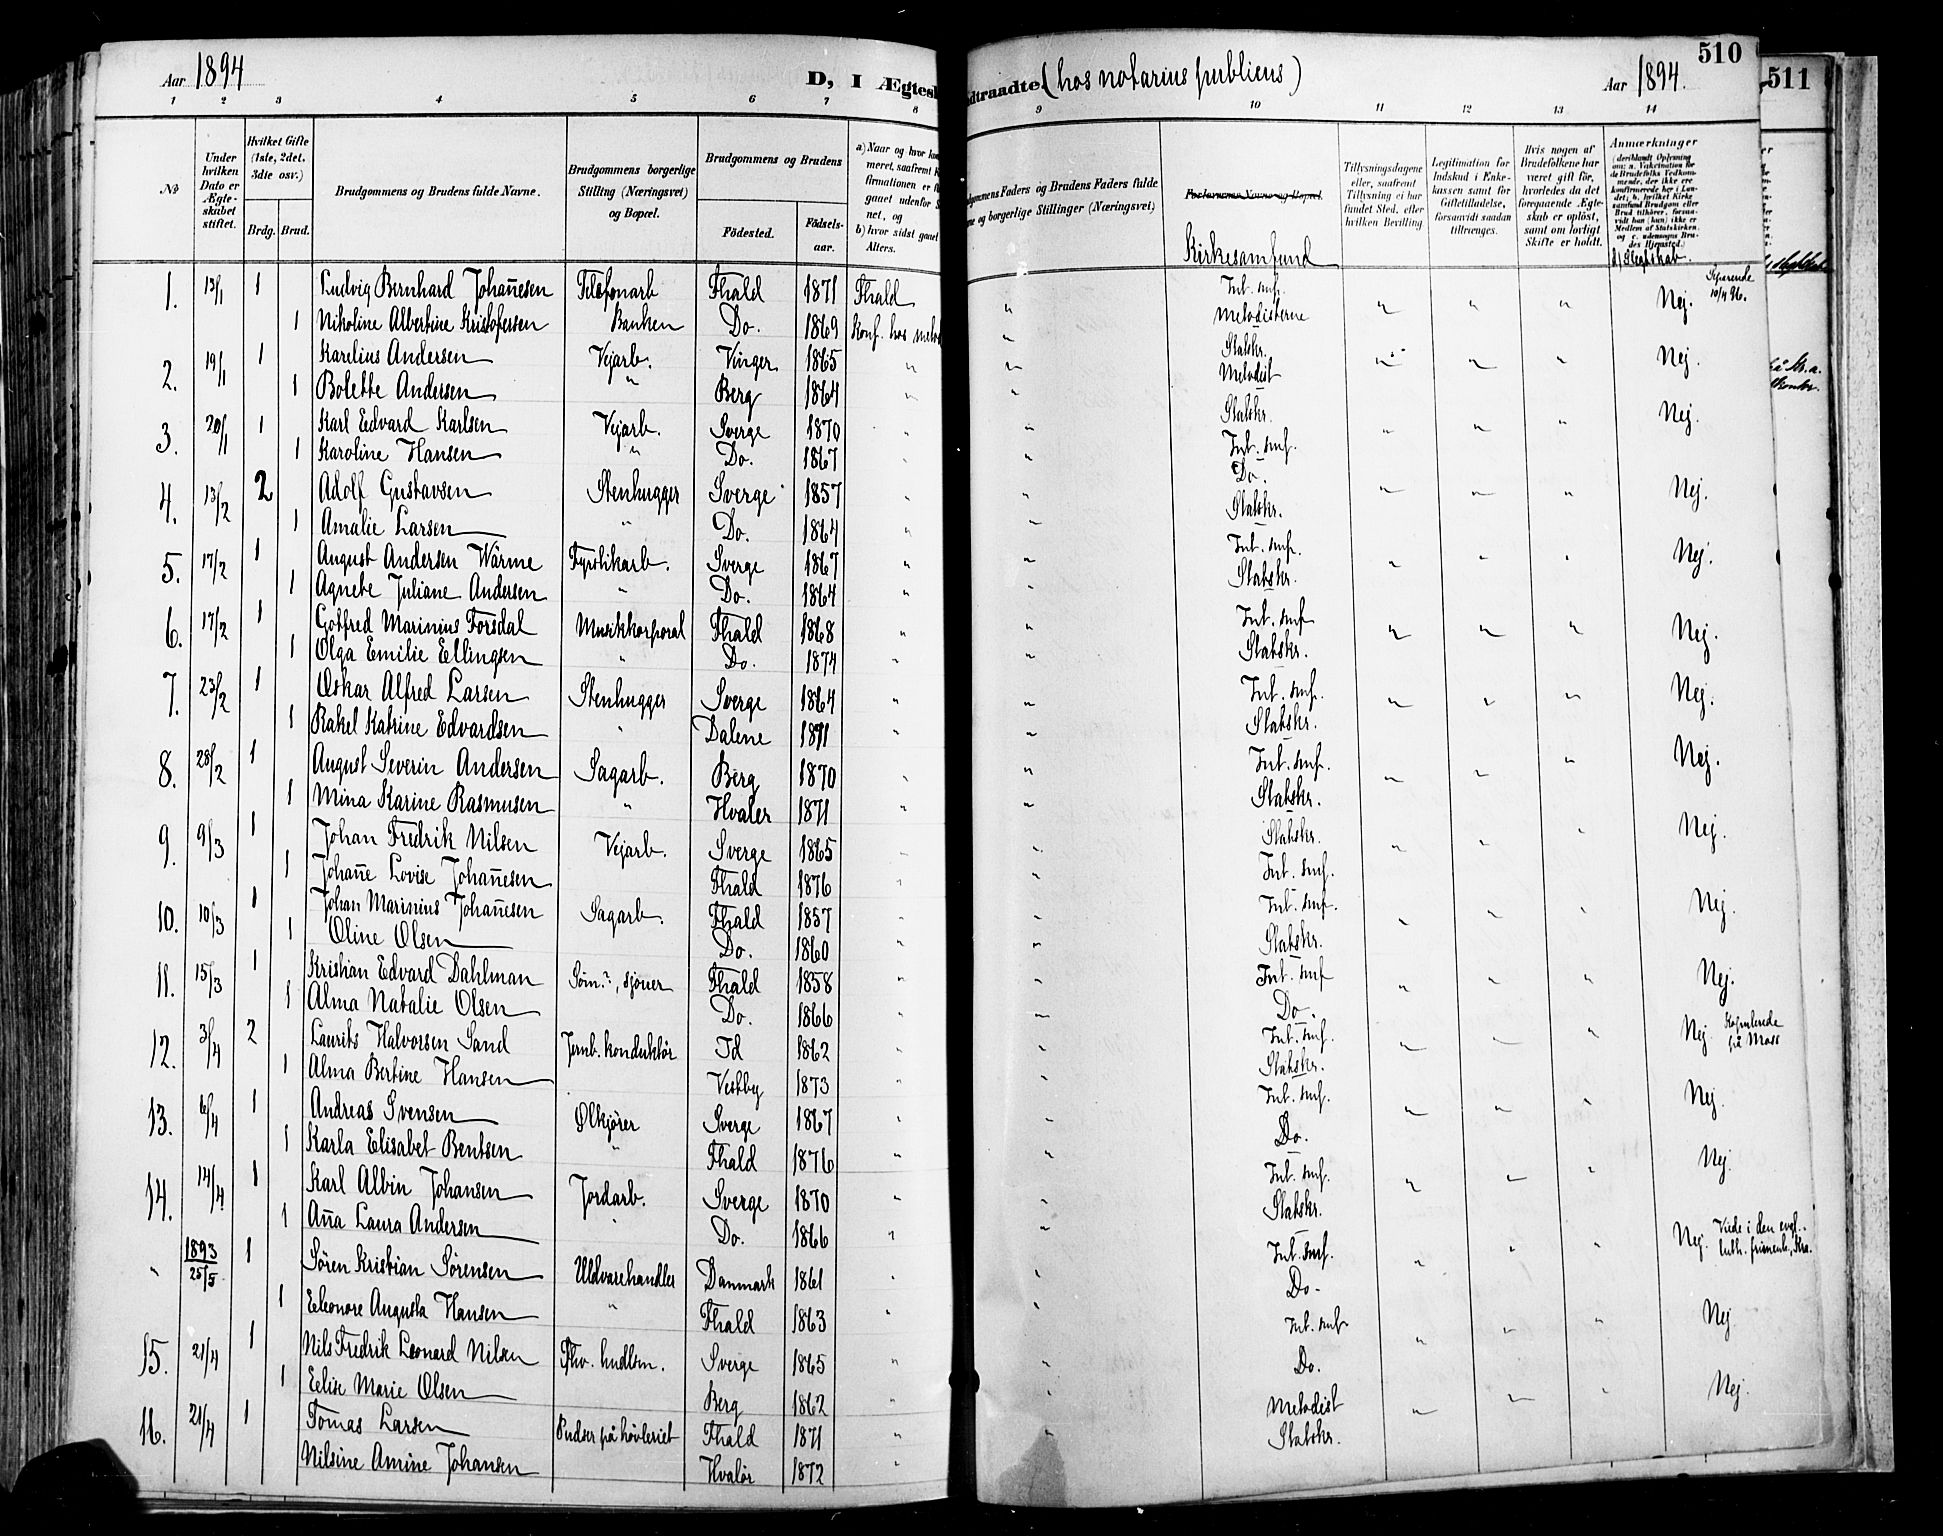 Aar 1894
D, I Ægtesk
1 2 3 4 5 6 7 8
No
Under hvilken Dato er Ægteskabet stiftet.
Hvilket Gifte (1ste, 2det. 3die osv.)
Brdg. Brud.
Brudgommens og Brudens fulde Navne.
Brudgommens borgerlige Stilling (Næringsvei) og Bopæl.
Brudgommens og Brudens
Födested.
Födselsaar.
1. 13/1 1 Ludvig Bernhard Johan̄esen Telefonarb Fhald 1871 Fhald
1 Nikoline Albertine Kristofersen Banken Do. 1869 Konf. hos
2. 19/1 1 Karelius Andersen Vejarb. Vinger 1865 "
1 Bolette Andersen " Berg 1864 "
3. 20/1 1 Karl Edvard Karlsen Vejarb. Sverge 1870 "
1 Karoline Hansen " Do. 1867 "
4. 13/2 2 Adolf Gustavsen Stenhugger Sverge 1857 "
1 Amalie Larsen " Do. 1864 "
5. 17/2 1 August Andersen Wärme Fyrstikarb. Sverge 1867 "
1 Agnete Juliane Andersen " Do. 1864 "
6. 17/2 1 Gotfred Marinius Forsdal Musikkorporal Fhald 1868 "
1 Olga Emilie Ellingsen " Do. 1874 "
7. 23/2 1 Oskar Alfred Larsen Stenhugger Sverge 1864 "
1 Rakel Katrine Edvardsen " Dalene 1871 "
8. 28/2 1 August Severin Andersen Sagarb. Berg 1870 "
1 Mina Karine Rasmusen " Hvaler 1871 "
9. 9/3 1 Johan Fredrik Nilsen Vejarb. Sverge 1865 "
1 Johan̄e Lovise Johan̄esen Fhald 1876 "
10. 10/3 1 Johan Marinius Johan̄esen Sagarb. Fhald 1857
1 Oline Olsen Do. 1860 "
11. 15/3 1 Kristian Edvard Dahlman Fhald 1858 "
1 Alma Natalie Olsen Do. 1866 "
12. 3/4 2 Laurits Halvorsen Sand Jernb. konduktör Id 1862 "
1 Alma Bertine Hansen Vestby 1873 "
13. 6/4 1 Andreas Svensen Ølkjörer Sverge 1867 "
1 Karla Elisabet Bentsen " Fhald 1876 "
14. 14/4 1 Karl Albin Johansen Jordarb. Sverge 1870 "
1 An̄a Laura Andersen " Do. 1866 "
" 1893 25/5 1 Sören Kristian Sörensen Uldvarehandler Danmark 1861 "
1 Eleonore Augusta Hansen " Fhald 1863 "
15. 21/4 1 Nils Fredrik Leonard Nilsen Sverge 1865 "
1 Elise Marie Olsen Berg 1862 "
16. 21/4 1 Tomas Larsen Pudser på hövleriet Fhald 1871 "
Nilsine Amine Johansen Hvalör 1872 "
510
ndtraadte (hos notarius publicus)
Aar 1894.
9 10 11 12 13 14
gommens Faders og Brudens Faders fulde
ne og borgerlige Stillinger (Næringsvei)
Forlovernes Navne og Bopæl.
Kirkesamfund
Tillysningsdagene eller, saafremt Tillysning ei har fundet Sted, efter hvilken Bevilling
Legitimation for Indskud i Enkekassen samt for Giftetilladelse, forsaavidt saadan tiltrænges.
Hvis nogen af Brudefolkene har været gift för, hvorledes da det foregaaende Ægteskab er oplöst, samt om lovligt Skifte er holdt.
Anmærkninger
Int. smf. Nej.
Metodisterne
Statskr. Nej.
Metodist
Statskr. Nej.
Int. smf.
Do. Nej.
Statskr.
Int. smf. Nej.
Statskr.
Int. smf Nej.
Statskr.
Int. smf. Nej.
Statskr.
Int. smf. Nej.
Statskr.
Statskr. Nej.
Int. smf.
Int. smf. Nej.
Statskr.
Int. smf Nej.
Do.
Int. smf. Nej på Moss
Statskr.
Int. smf. Nej.
Do.
Int. smf. Nej
Statskr.
Int. smf. Nej. Viede i den evgl. luth. frimenh., Kra.
Do.
Int. smf Nej
Do.
Metodist Nej.
Statskr.
511